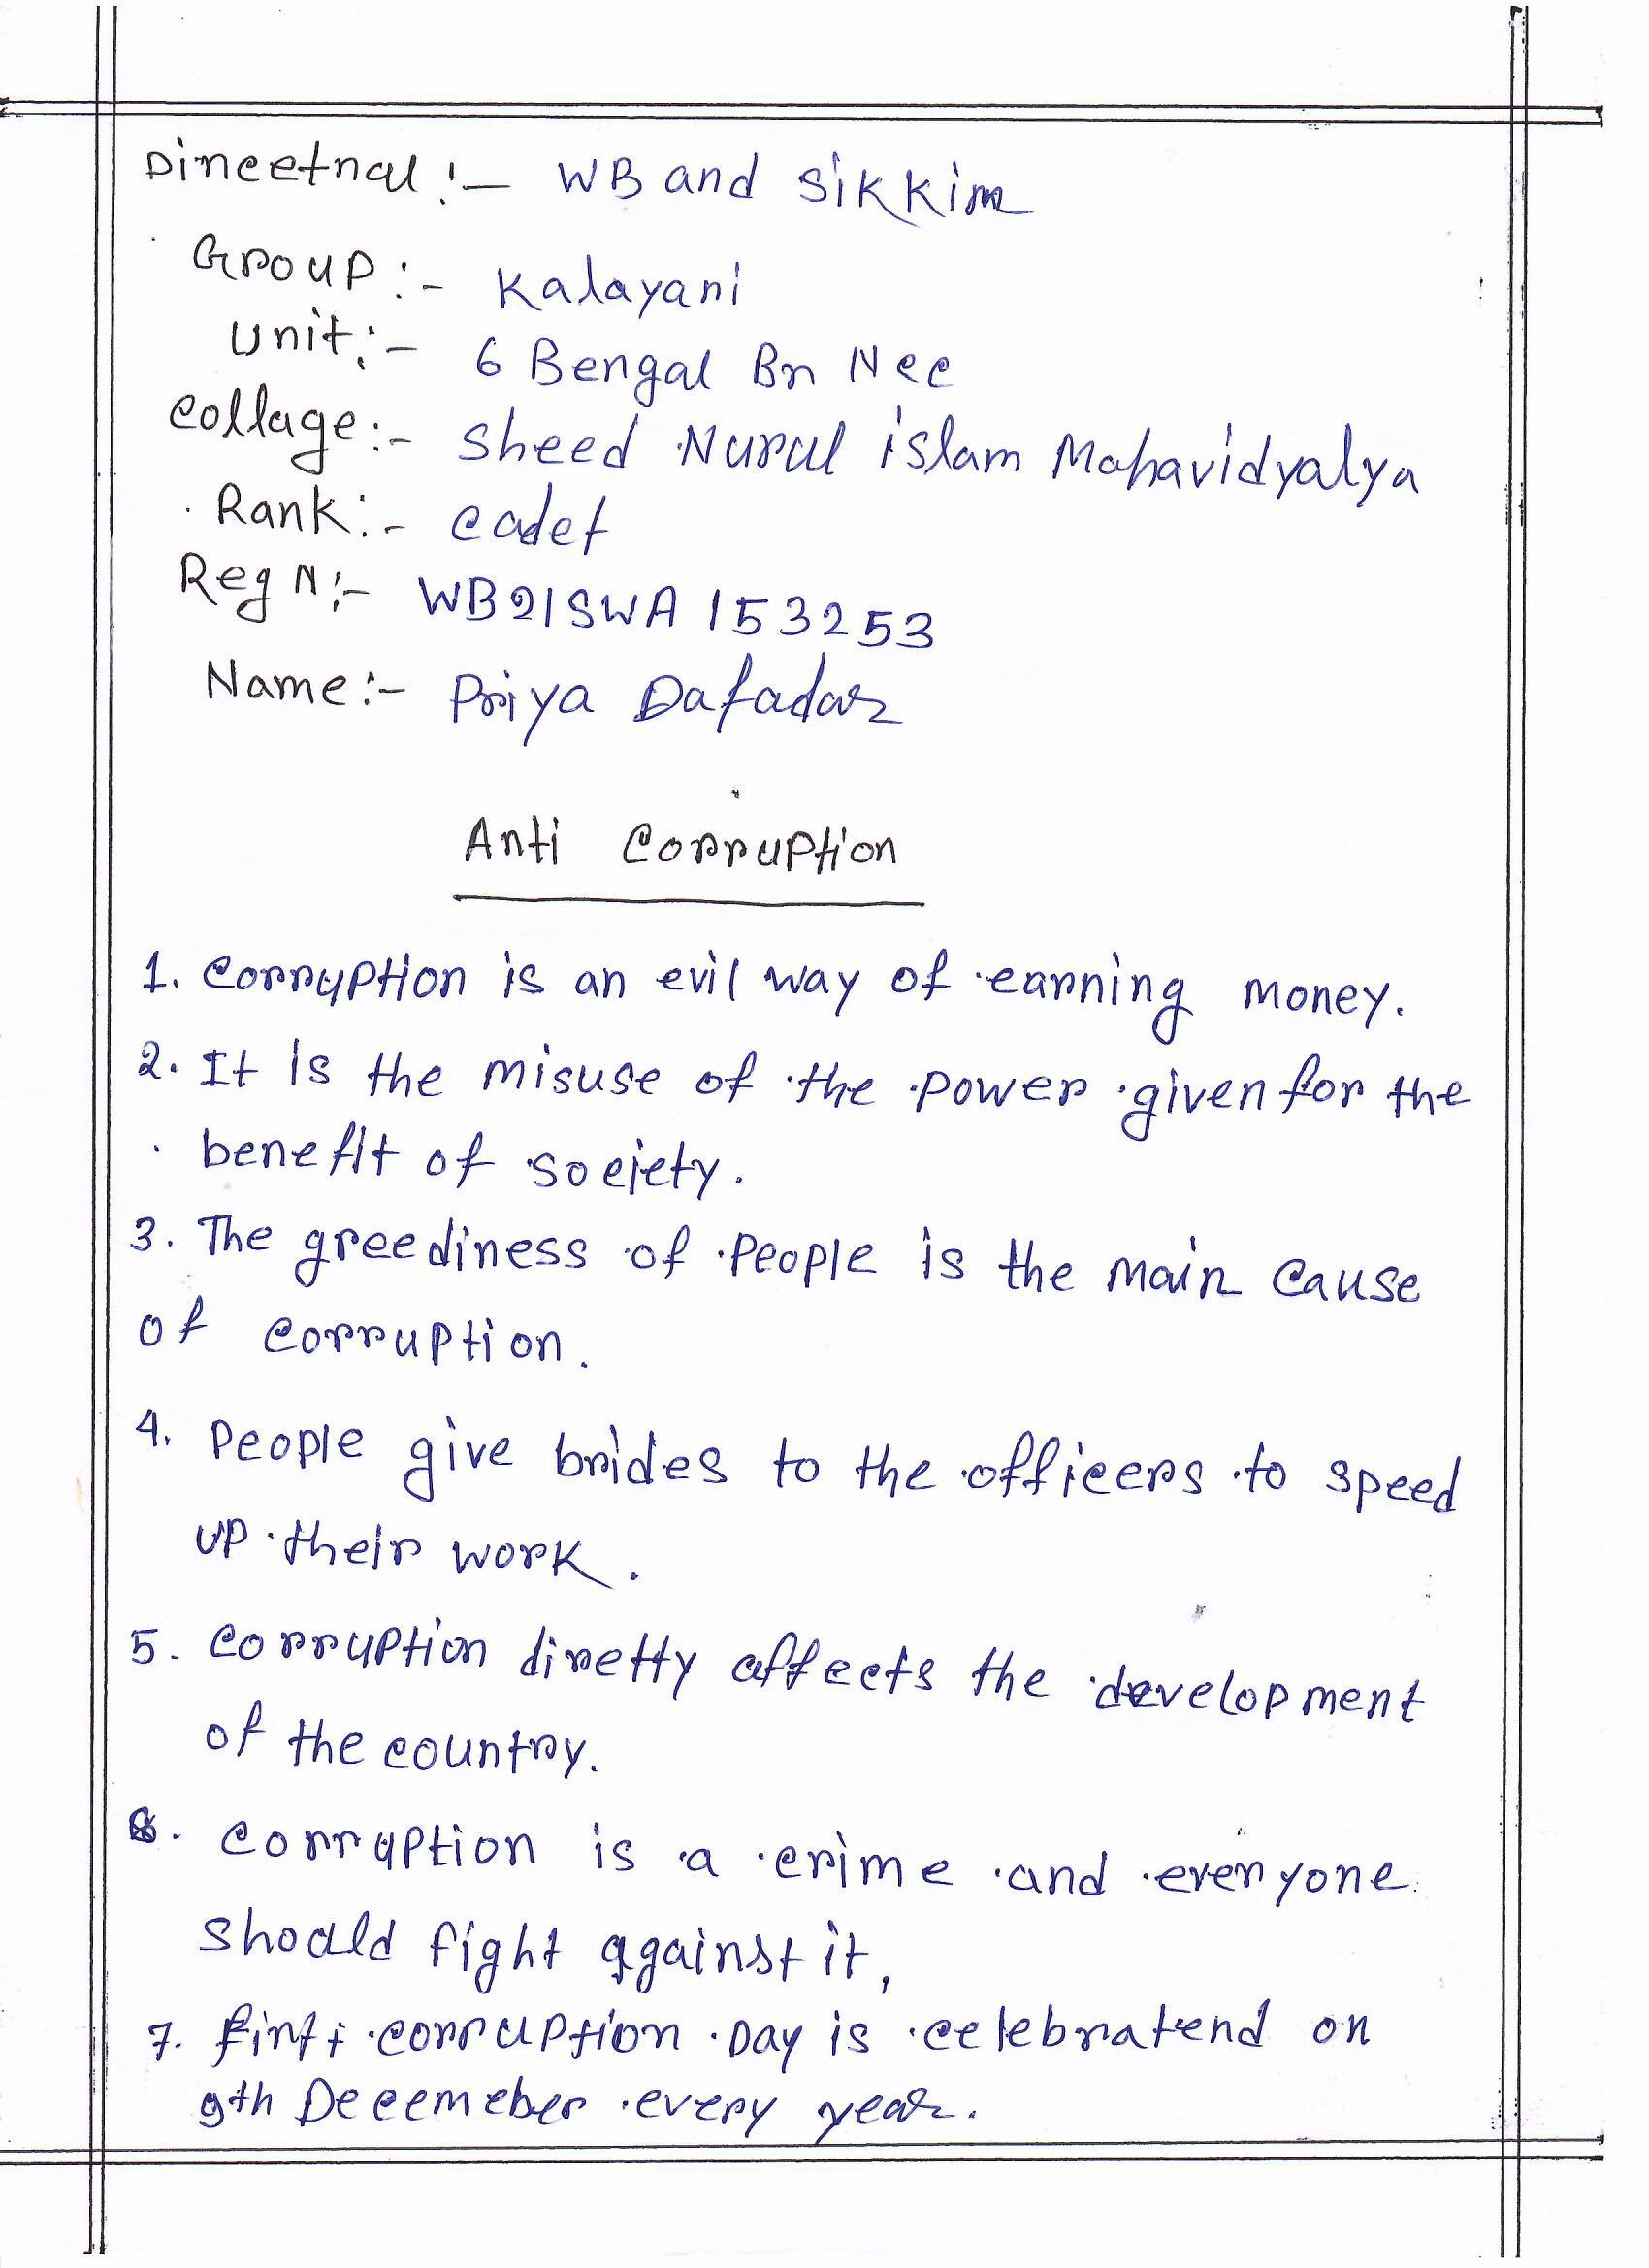 Direetnal :- WB and Sikkim
Group :- Kalayani
Unit :- 6 Bengal Bn Ncc
Collage :- Sheed Nurul islam Mahavidyalya
Rank :- Cadet
Reg N :- WB21SWA153253
Name :- Priya Dafadar
Anti Corruption
1. Corruption is an evil way of earning money.
2. It Is the misuse of the power given for the
benefit of society.
3. The greediness of People is the main cause
of corruption.
4. People give brides to the officers to speed
up their work.
5. Corruption diretty affects the development
of the country.
6. Corruption is a crime and everyone
should fight against it,
7. corruption Day is celebratend on
9th Decemeber every year.